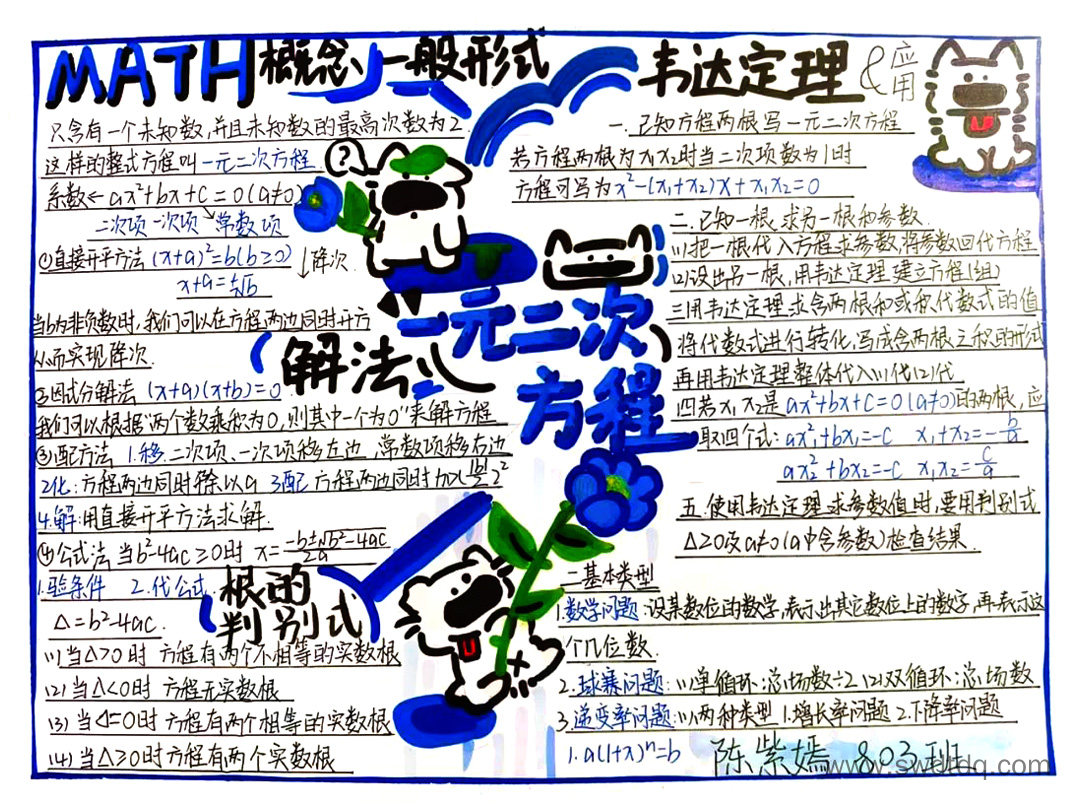 MATH 概念、一般形式
只含有一个未知数,并且未知数的最高次数为2.
这样的整式方程叫一元二次方程
系数←ax²+bx+c=0(a≠0)
二次项 一次项 常数项
①直接开平方法 (x+a)²=b(b≥0) ↓降次.
x+a=±√b
当b为非负数时,我们可以在方程两边同时开方
从而实现降次.
②因式分解法 (x+a)(x+b)=0
我们可以根据"两个数乘积为0,则其中一个为0"来解方程
③配方法 1.移.二次项、一次项移左边,常数项移右边
2化:方程两边同时除以a 3配 方程两边同时加
4.解:用直接开平方法求解.
④公式法 当b²-4ac≥0时 x=-b±√b²-4ac/2a
1.验条件 2.代公式
根的
判别式
Δ=b²-4ac.
(1)当Δ>0时 方程有两个不相等的实数根
(2)当Δ<0时 方程无实数根
(3)当Δ=0时 方程有两个相等的实数根
(4)当Δ≥0时方程有两个实数根
?
一元二次
方程
解法
韦达定理&应用
一.已知方程两根写一元二次方程
若方程两根为x₁x₂时当二次项数为1时
方程可写为x²-(x₁+x₂)x+x₁x₂=0
二.已知一根,求另一根和参数.
(1)把一根代入方程求参数,将参数回代方程
(2)设出另一根,用韦达定理建立方程(组)
三用韦达定理求含两根和或积代数式的值
将代数式进行转化,写成含两根之积的形式
再用韦达定理整体代入(1)代(2)代
四若x₁x₂是ax²+bx+c=0(a≠0)的两根,应
取四个式:ax₁²+bx₁=-c x₁+x₂=-b/a
ax₂²+bx₂=-c x₁x₂=c/a
五.使用韦达定理求参数值时,要用判别式
Δ≥0及a≠0(a中含参数)检查结果.
二基本类型
1.数学问题:设某数位的数学,表示出其它数位上的数字,再表示这
个几位数.
2.球赛问题:(1)单循环:总场数÷2 (2)双循环:总场数
3.递变率问题:(1)两种类型 1.增长率问题 2.下降率问题
1.a(1+x)ⁿ=b
陈紫嫣 803班